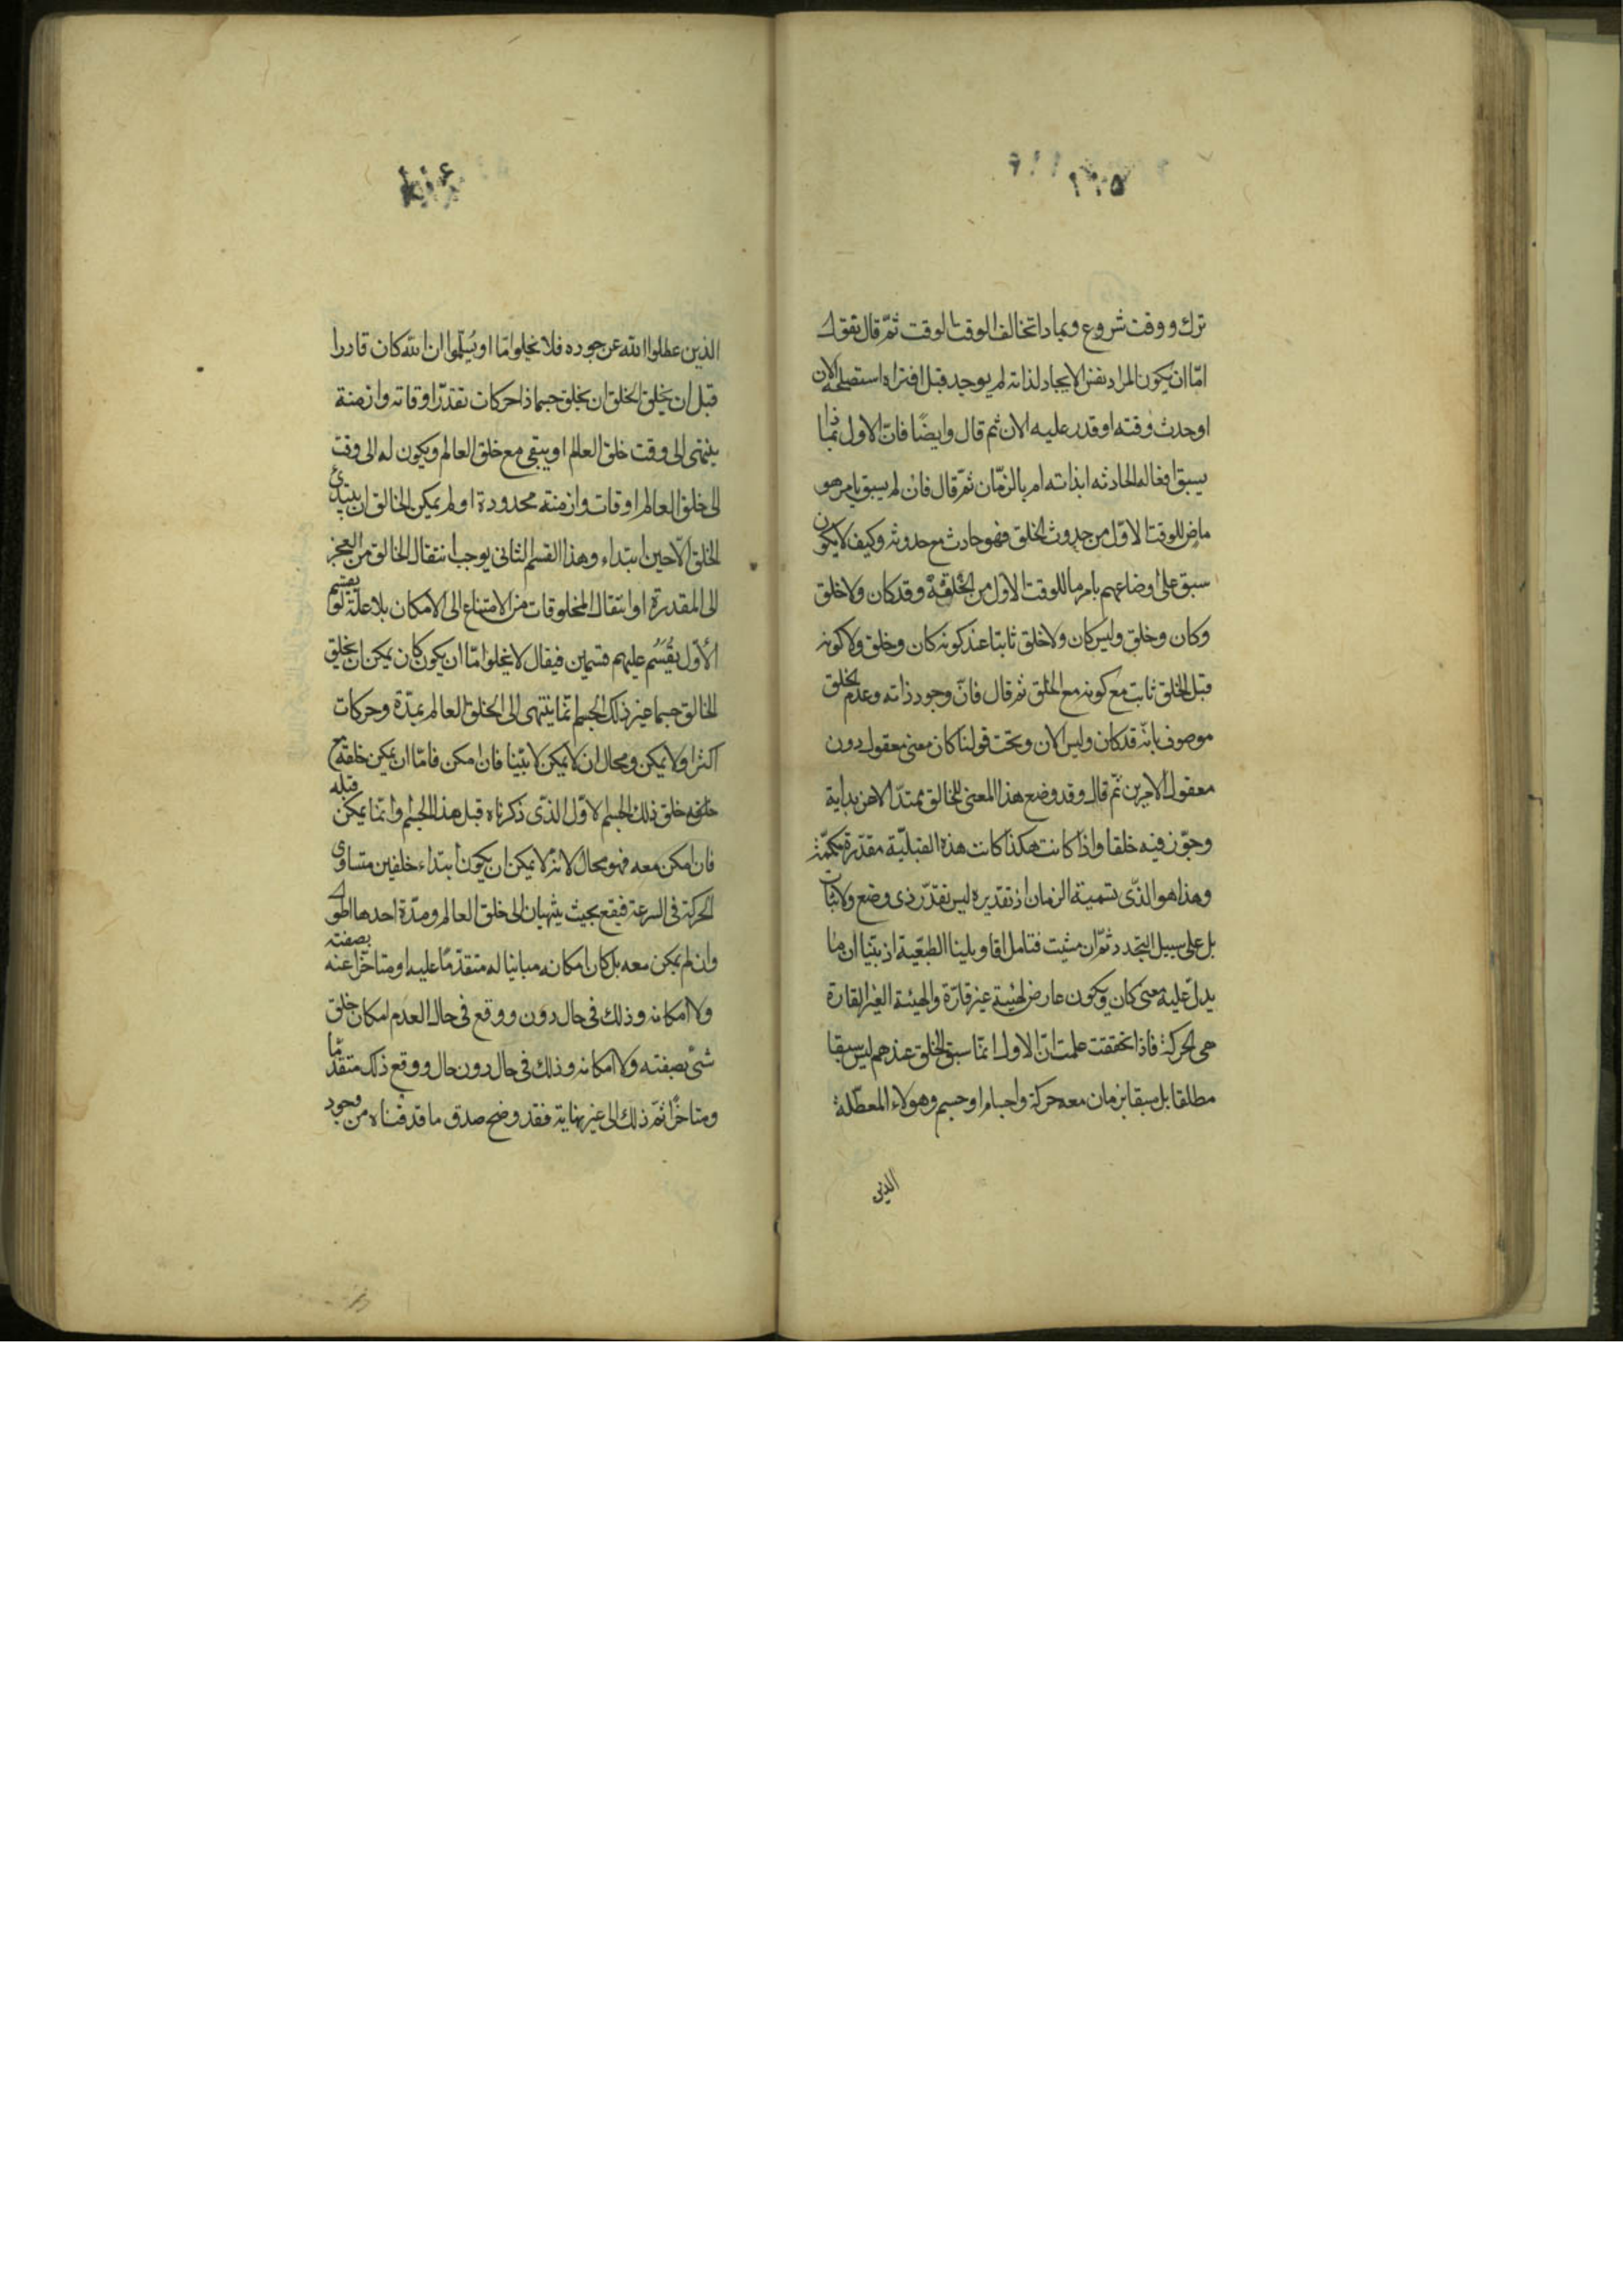 ١٠٥
ترك ووقت شروع وبماذا تخالف الوقت الوقت ثمّ قال نقول
امّا ان يكون المراد نفس الايجاد لذاته لم يوجد قبل افتراه استصلحه الان
او حدث وقته او قدر عليه الان ثم قال وايضًا فانّ الاول بماذا
يسبق افعاله الحادثه ابذاته ام بالزمّان ثمّ قال فان لم يسبق بامر هو
ماضٍ للوقت الاوّل من حدوث الخلق فهو حادث مع حدوثه وكيف لا يكون
سبق على اوضاعهم بامر ما للوقت الاول من الخلقة وقد كان ولا خلق
وكان وخلق وليس كان ولا خلق ثابتا عند كونه كان وخلق ولا كونه
قبل الخلق ثابت مع كونه مع الخلق ثم قال فانّ وجود ذاته وعدم الخلق
موصوف بانّه قد كان وليس الان وتحت قولنا كان معنى معقول دون
معقول الامرين ثّم قال وقد وضع هذا المعنى للخالق ممتدّا لا عن بداية
وجوّز فيه خلقا واذا كانت هكذا كانت هذه القبليّة مقدّرة مكمّمة
وهذا هو الذّى نسميّة الزمان اذ تقديره ليس تقدّر ذى وضع ولا ثبات
بل على سبيل التجدد ثمّ ان شيت فتامل اقاويلينا الطبّعيّة اذ بيّنا ان ما
يدلّ عليه معنى كان ويكون عارض لهيئة غير قارّة والهيئة الغير القارة
هى الحركة فاذا تحققت علمت انّ الاول انمّا سبق الخلق عندهم ليس سبقا
مطلقا بل سبقا بزمان معه حركة واجسام او جسم وهولاء المعطّلة
الذين
١٠٦
الذين عطلوا الله عن جوده فلا يخلوا امّا او يُسَلّموا ان الله كان قادرا
قبل ان يخلق الخلق ان يخلق جسما ذا حركات تقدّر اوقاته وازمنة
ينتهى الى وقت خلق العالم او يبقى مع خلق العالم ويكون له الى وقت
الى خلق العالم اوقات وازمنته محدودة او لم يمكن الخالق ان يبتدئ
الخلق الّا حين ابتداء وهذا القسم الثانى يوجب انتقال الخالق من العجز
الى المقدرة او انتقال المخلوقات من الامتناع الى الامكان بلا علّة لقسم
الأوّل يُقَسَّم عليهم قسمين فيقال لا يخلوا امّا ان يكون كان يمكن ان يخلق
الخالق جسما غير ذلك الجسم انمّا ينتهى الى الخلق العالم بمدّة وحركات
اكثر او لا يمكن ومحال ان لا يمكن لا بيّنا فان امكن فامّا ان يمكن خلقه مع
خلقه خلق ذلك الجسم الاوّل الذّى ذكرناه قبل هذا الجسم وانمّا يمكن قبله
فان امكن معه فهو محال لانّه لا يمكن ان يكون ابتداء خلقين متساوى
الحركة فى السرعة فيقع بحيث ينتهيان الى خلق العالم ومدّة احدهما اطول
وان لم يمكن معه بل كان امكانه مباينا له متقدّمًا عليه او متاخّرا عنه بصفته
ولا امكانه وذلك فى حال دون ووقع فى حال العدم امكان خلق
شىء بصفته ولا امكانه وذلك فى حال دون حال ووقع ذلك متقدّما
ومتاخّرا ثمّ ذلك الى غير نهاية فقد وضح صدق ما قدمّناه من وجود